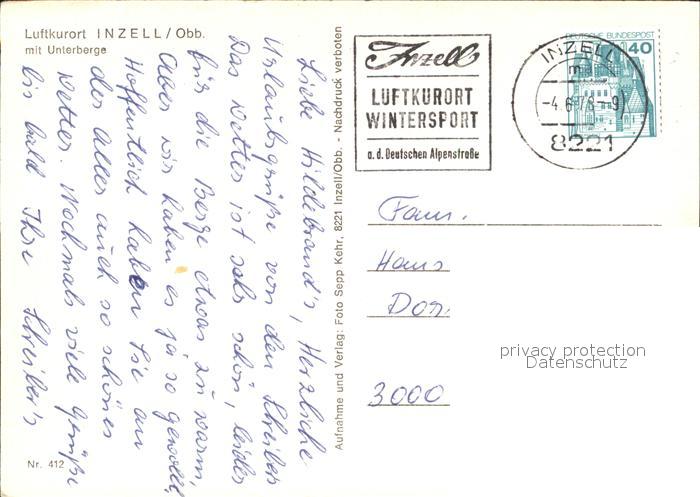 Luftkurort INZELL/Obb.
mit Unterberge
Liebe Hildebrand's, Herzliche
Urlaubsgrüße von den Schreibers
Das Wetter ist sehr schön, leider
für die Berge etwas zu warm,
Aber wir haben es ja so gewollt,
Hoffentlich haben Sie an
der allen auch so schönes
Wetter. Nochmals viele Grüße
bis bald Ihre Schreiber's
Nr. 412
Aufnahme und Verlag: Foto Sepp Kehr, 8221 Inzell/Obb. - Nachdruck verboten
Inzell
LUFTKURORT
WINTERSPORT
a.d. Deutschen Alpenstraße
INZELL
-4.6.78-9
8221
DEUTSCHE BUNDESPOST
40
Fam.
Hans
3000
privacy protection
Datenschutz